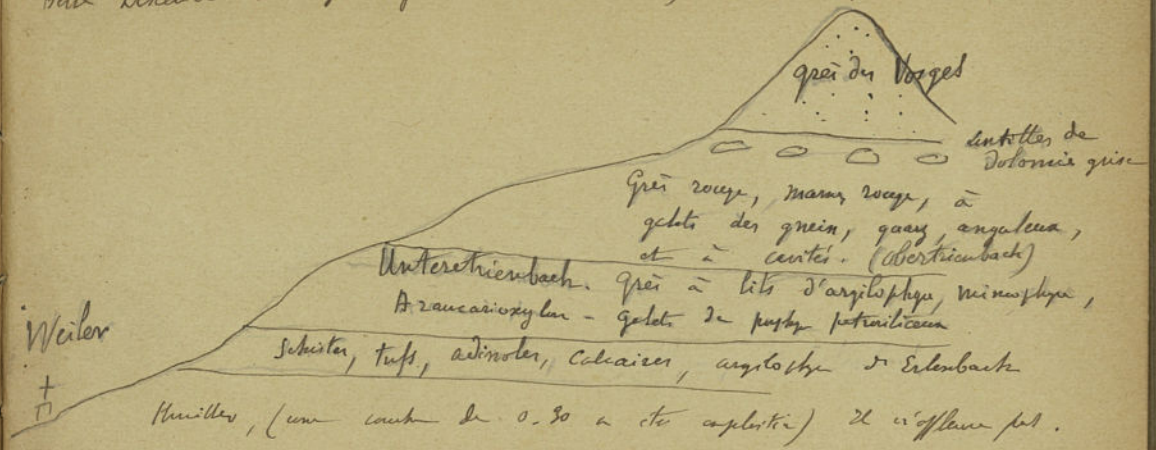 grès des Vosges
lentilles de
Dolomie grise
Grès rouge, marnes rouge, à
galets des gneiss, quarz, anguleux,
et à cavités. (obertrienbach)
Untertrienbach. Grès à lits d'argilophyre, mimophyre,
Araucarioxylon - Galets de porphyre petrosiliceux
Weiler
Schistes, tufs, adinoles, Calcaires, argilophyre d'Erlenbach
Houiller, (une couche de 0.30 a été exploitée) Il n'affleure pas.